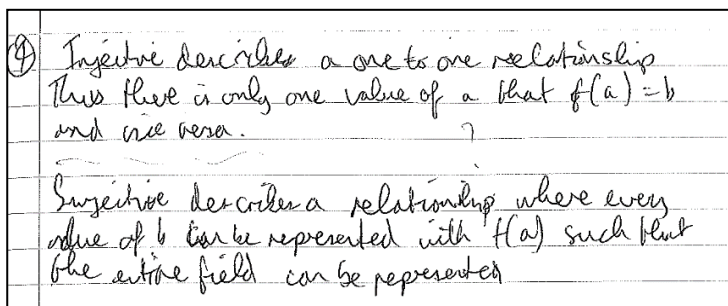 ④ Injective describes a one to one relationship
Thus there is only one value of a that f(a) = b
and vice versa. ?
Surjective describes a relationship where every
value of b can be represented with f(a) such that
the entire field can be represented